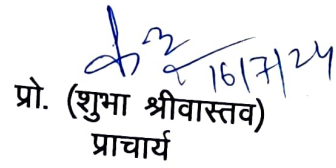 16/7/24
प्रो. (शुभा श्रीवास्तव)
प्राचार्य